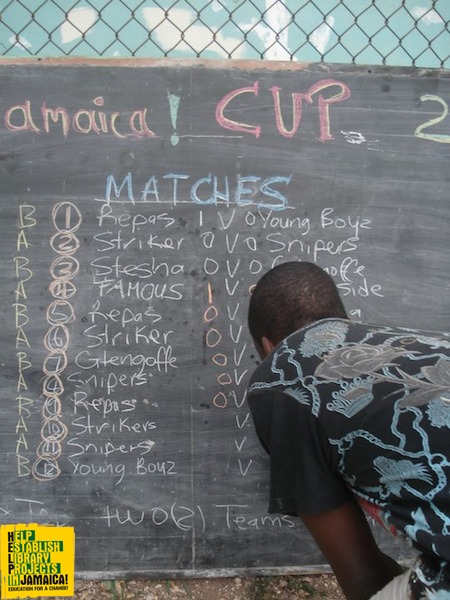 amaica! CUP 2
MATCHES
B 1 Repas 1 V 0 Young Boyz
A 2 Striker 0 V 0 Snipers
B 3 Stesha 0 V
A 4 FAMOUS 1 V Side
B 5 Repas 0 V a
A 6 Striker 0 V
B 7 Glengoffe 0 V
A Snipers 0 V
B Repas 0 V
A Strikers V
A Snipers V
B 12 Young Boyz V
two(2) Teams
HELP
ESTABLISH
LIBRARY
PROJECTS
IN JAMAICA!
EDUCATION FOR A CHANGE!